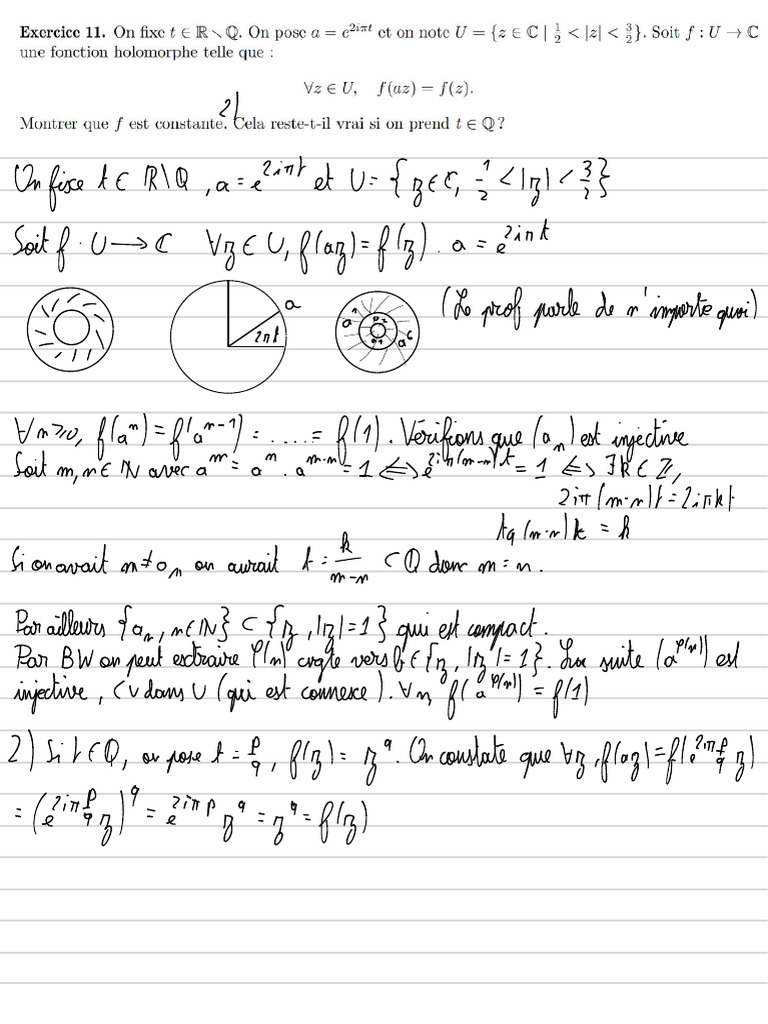 Exercice 11. On fixe t ∈ ℝ∖ℚ. On pose a = e^{2iπt} et on note U = {z ∈ ℂ | 1/2 < |z| < 3/2}. Soit f : U → ℂ
une fonction holomorphe telle que :
∀z ∈ U, f(az) = f(z).
2)
Montrer que f est constante. Cela reste-t-il vrai si on prend t ∈ ℚ ?
On fixe t ∈ ℝ\ℚ, a = e^{2iπt} et U = {z ∈ ℂ, 1/2 < |z| < 3/2}
Soit f : U → ℂ ∀z ∈ U, f(az) = f(z). a = e^{2iπt}
a 2πt (Le prof parle de n'importe quoi)
∀n≥0, f(a^n) = f(a^{n-1}) = .... = f(1). Vérifions que (a_n) est injective
Soit m, n ∈ ℕ avec a^m = a^n. a^{m-n} = 1 ⟺ e^{2iπ(m-n)t} = 1 ⟺ ∃k ∈ ℤ,
2iπ(m-n)t = 2iπk
tq (m-n)t = k
Si on avait m ≠ n, on aurait t = k/(m-n) ∈ ℚ donc m = n.
Par ailleurs {a_n, n∈ℕ} ⊂ {z, |z|=1} qui est compact.
Par BW on peut extraire φ(n) cvgte vers b ∈ {z, |z|=1}. La suite (a^{φ(n)}) est
injective, CV dans U (qui est connexe). ∀n, f(a^{φ(n)}) = f(1)
2) Si t∈ℚ, on pose t = p/q, f(z) = z^q. On constate que ∀z, f(az) = f(e^{2iπp/q} z)
= (e^{2iπp/q} z)^q = e^{2iπp} z^q = z^q = f(z)